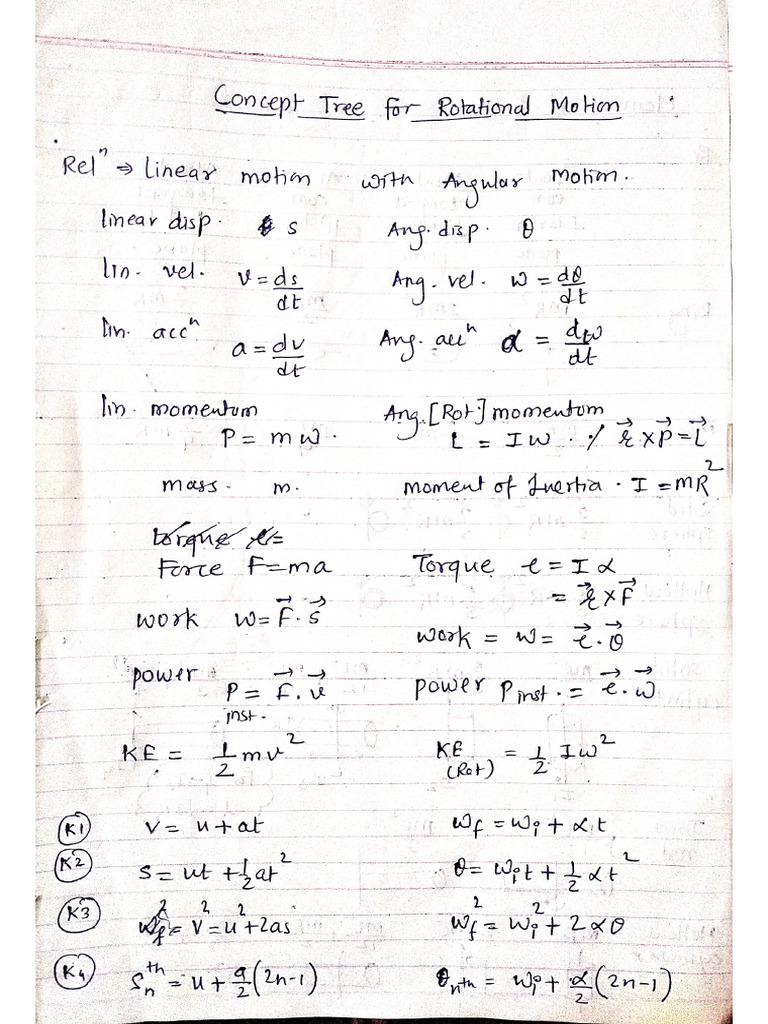 Concept Tree for Rotational Motion
Relⁿ ⇒ Linear motion with Angular Motion.
linear disp. s Ang. disp. θ
lin. vel. v = ds/dt Ang. vel. w = dθ/dt
lin. accⁿ a = dv/dt Ang. accⁿ α = dw/dt
lin. momentum Ang. [Rot.] momentum
P = m w. L = I w . / r⃗ × P⃗ = L⃗
mass. m. moment of Inertia . I = mR²
torque τ =
Force F = ma Torque τ = I α
= r⃗ × F⃗
work w = F⃗ . s⃗ work = w = τ⃗ . θ⃗
power P inst. = F⃗ . v⃗ power P inst. = τ⃗ . w⃗
KE = 1/2 mv² KE (Rot) = 1/2 I w²
K1 v = u + at wf = wi + αt
K2 s = ut + 1/2 at² θ = wit + 1/2 αt²
K3 wf² = v² = u² + 2as wf² = wi² + 2αθ
K4 Snᵗʰ = u + a/2 (2n-1) θnth = wi + α/2 (2n-1)